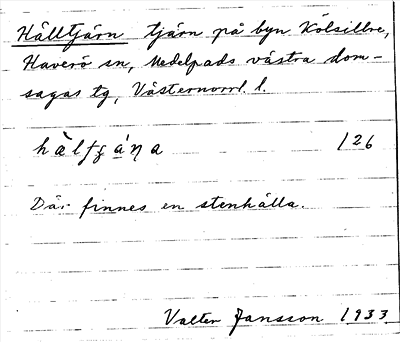 Hälltjärn tjärn på byn Kölsillre,
Haverö sn, Medelpads västra dom-
sagas tg, Västernorrl. l.
hàlfgáŋa 126
Där finnes en stenhälla.
Valter Jansson 1933